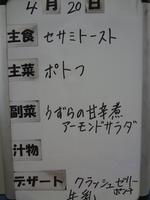 4月20日
主食 セサミトースト
主菜 ポトフ
副菜 うずらの甘辛煮
アーモンドサラダ
汁物
デザート クラッシュゼリー
ポンチ
牛乳